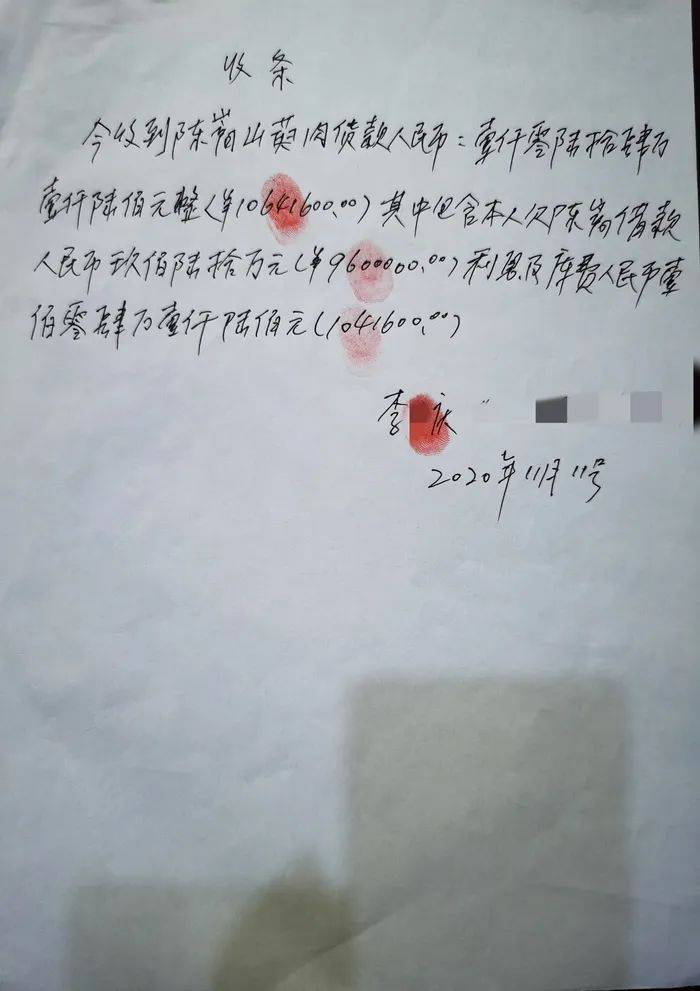 收条
今收到陈嵩山萸肉货款人民币：壹仟零陆拾肆万
壹仟陆佰元整（￥10641600.00）其中包含本人欠陈嵩借款
人民币玖佰陆拾万元（￥9600000.00）利息及库费人民币壹
佰零肆万壹仟陆佰元（1041600.00）
李 庆
2020年11月11号